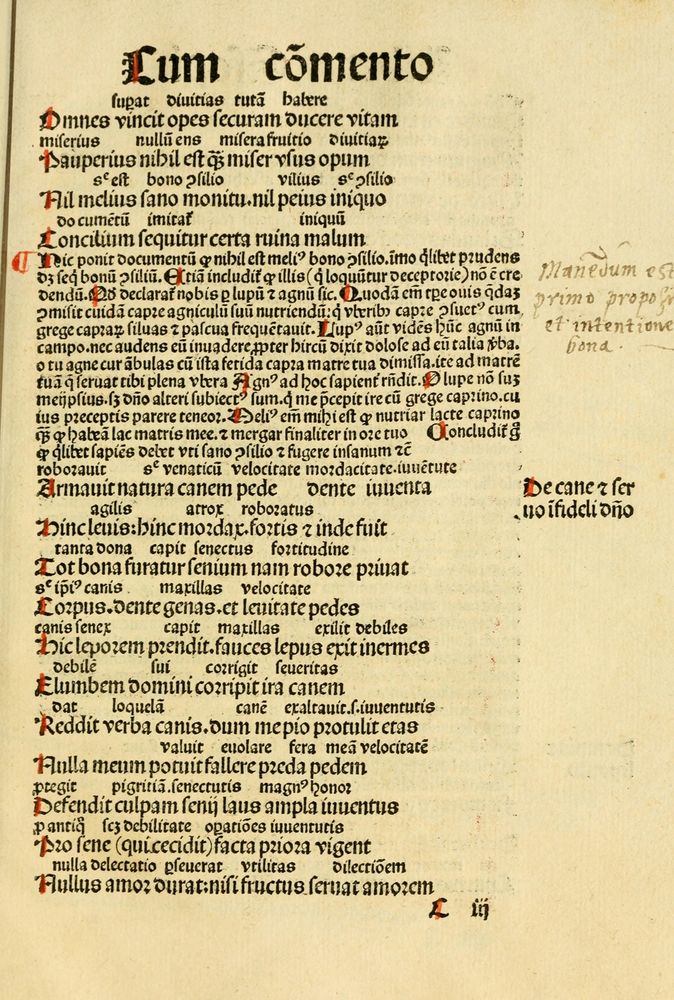 Cum cōmento
supat divitias tutā habere
Omnes vincit opes securam ducere vitam
miserius nullū ens misera fruitio divitiaꝝ
Pauperius nihil est qꝫ miser vsus opum
sᶜ est bono ꝯsilio vilius sᶜ ꝯsilio
Nil melius sano monitu. nil peius iniquo
documētū imitat̄ iniquū
Concilium sequitur certa ruina malum
¶ Hic ponit documentū ꝙ nihil est meliꝰ bono ꝯsilio. īmo qͥlibet prudens
dꝫ seqͥ bonū ꝯsiliū. Etiā includit̄ ꝙ illis (qͥ loquūtur deceptorie) nō ē cre
dendū. Qd̄ declarat̄ nobis ꝑ lupū ⁊ agnū sic. Quodā em̄ tꝑe ouis qͣdaꝫ
ꝯmisit cuidā capre agniculū suū nutriendū: qͥ vberibꝰ capre ꝯsuetꝰ cum
grege capraꝝ siluas ⁊ pascua frequētauit. Lupꝰ aūt vidēs hūc agnū in
campo. nec audens eū inuadere ꝓpter hircū dixit dolose ad eū talia ꝟba.
o tu agne cur ābulas cū ista fetida capra matre tua dimissa. ite ad matrē
tuā qͣ seruat tibi plena vbera Agnꝰ ad hoc sapient̄ rn̄dit. O lupe nō suꝫ
meijpsius. sꝫ dn̄o alteri subiectꝰ sum. qͥ me p̄cepit ire cū grege caprino. cu
ius preceptis parere teneor. Meliꝰ em̄ mihi est ꝙ nutriar lacte caprino
qꝫ ꝙ habeā lac matris mee. ⁊ mergar finaliter in ore tuo Concludit̄ g̊
ꝙ qͥlibet sapiēs debet vti sano ꝯsilio ⁊ fugere insanum ⁊c̄
Manēdum est
primo propo
et intentione
bona.
roborauit sᶜ venaticū velocitate mordacitate. iuuētute
Armauit natura canem pede dente iuuenta
De cane ⁊ ser
uo īfideli dn̄o
agilis atrox roboratus
Hinc leuis: hinc mordax. fortis ⁊ inde fuit
tanta dona capit senectus fortitudine
Tot bona furatur senium nam robore priuat
sᶜ ip̄iꝰ canis maxillas velocitate
Corpus. dente genas. et leuitate pedes
canis senex capit maxillas exilit debiles
Hic leporem prendit. fauces lepus exit inermes
debilē sui corrigit seueritas
Elumbem domini corripit ira canem
dat loquelā canē exaltauit. s. iuuentutis
Reddit verba canis. dum me pio protulit etas
valuit euolare fera meā velocitatē
Nulla meum potuit fallere preda pedem
ꝓtegit pigritiā. senectutis magnꝰ honor
Defendit culpam senij laus ampla iuuentus
ꝓ antiqͦ scꝫ debilitate oꝑatiōes iuuentutis
Pro sene (qui cecidit) facta priora vigent
nulla delectatio ꝑseuerat vtilitas dilectiōem
Nullus amor durat: nisi fructus seruat amorem
C iij